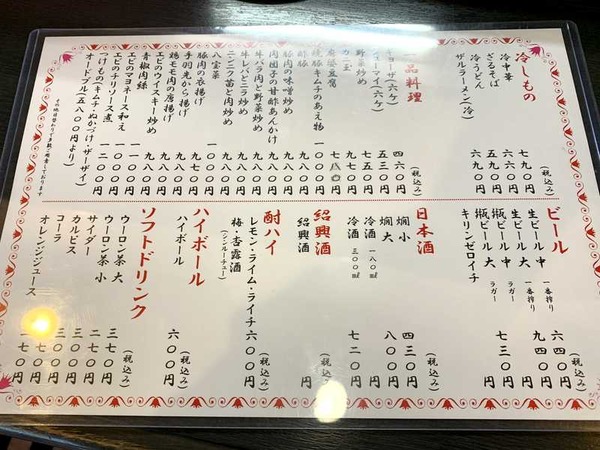 冷しもの
(税込み)
冷中華 七九〇円
ざるそば 六六〇円
冷うどん 五九〇円
ザルラーメン(冷) 六九〇円
一品料理
(税込み)
ギョーザ(六ケ) 四六〇円
シューマイ(六ケ) 五三〇円
野菜炒め 七五〇円
カニ玉
麻婆豆腐
豚焼キムチのあえ物 一〇〇〇円
豚肉の味噌炒め 九八〇円
肉団子の甘酢あんかけ 九八〇円
牛バラ肉と野菜炒め 九八〇円
牛レバとニラ炒め 九八〇円
ニンニク苗と肉炒め 九八〇円
八宝菜 一〇〇〇円
豚肉の衣揚げ
手羽先から揚げ
鶏モモ肉の唐揚げ 九八〇円
エビのウイスキー炒め
青椒肉絲
エビのマヨネーズ和え 一一〇〇円
エビのチリソース煮 一一〇〇円
つけもの(キムチ・ぬかづけ・ザーサイ)
オードブル(五八〇〇円より)
ビール
(税込み)
生ビール 中 一番搾り 六四〇円
生ビール 大 一番搾り 九四〇円
瓶ビール 中 ラガー
瓶ビール 大 ラガー 七三〇円
キリンゼロイチ
日本酒
(税込み)
燗 小 四三〇円
燗 大 八〇〇円
冷酒 一八〇ml
冷酒 三〇〇ml 七二〇円
紹興酒
(税込み)
紹興酒
酎ハイ
(税込み)
レモン・ライム・ライチ 六〇〇円
梅・杏露酒
(シンルーチュー)
ハイボール
(税込み)
ハイボール 六〇〇円
ソフトドリンク
(税込み)
ウーロン茶 大 三七〇円
ウーロン茶 小 二七〇円
サイダー 三〇〇円
カルピス 三〇〇円
コーラ
オレンジジュース